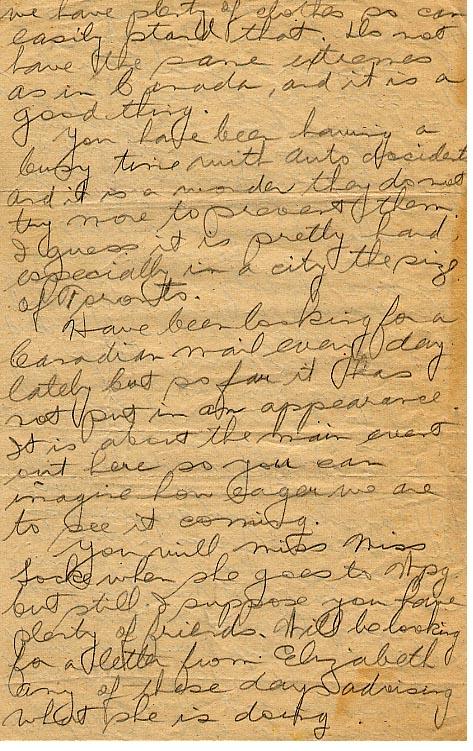 we have plenty of clothes so can
easily stand that. Do not
have the same extremes
as in Canada, and it is a
good thing.
You have been having a
busy time with auto accidents
and it is a wonder they do not
try more to prevent them.
I guess it is pretty hard
especially in a city the size
of Toronto.
Have been looking for a
Canadian mail every day
lately but so far it has
not put in an appearance.
It is about the main event
out here so you can
imagine how eager we are
to see it coming.
You will miss Miss
Locke when she goes to Wpg.
but still I suppose you have
plenty of friends. Will be looking
for a letter from Elizabeth
any of these days advising
what she is doing.